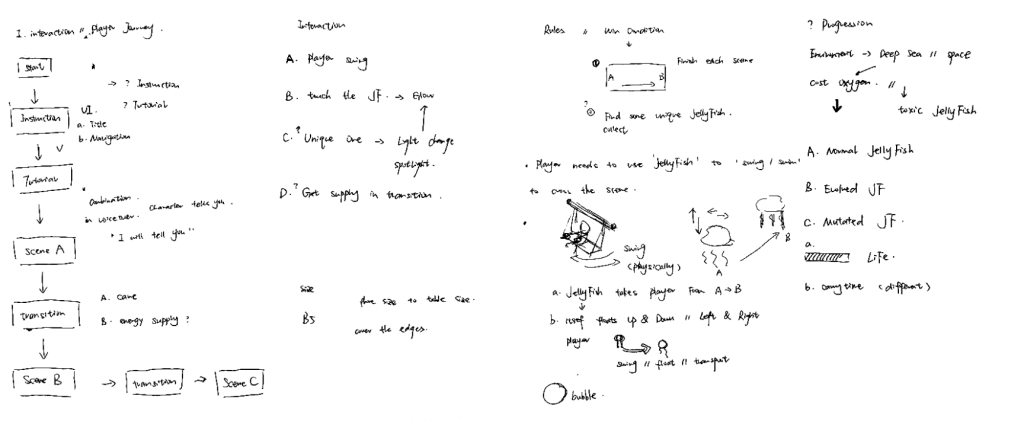 I. interaction // Player Journey.
Start
*
→ ? Instruction
? Tutorial
Instruction
UI.
a. Title
b. Navigation
Tutorial
Combination.
in voiceover. Character tells you.
"I will tell you"
Scene A
transition
A. cave
B. energy supply ?
Scene B → transition → Scene C
Interaction
A. Player swing
B. touch the JF. → Glow
C. ? Unique one → Light change
spotlight.
D. ? Get supply in transition.
size
size to table size.
B5
cover the edges.
Rules // Win Condition
① A → B Finish each scene
?
② Find some unique JellyFish.
collect
• Player needs to use 'JellyFish' to 'swing / swim'
to cross the scene.
swing
(physically)
A
B
a. JellyFish takes player from A → B
b. itself floats Up & Down // Left & Right
player
swing // float // transport
bubble.
? Progression
Environment → Deep sea // space
Cost oxygen. //
toxic JellyFish
A. Normal JellyFish
B. Evolved JF
C. Mutated JF.
a.
Life.
b. carry time (different)